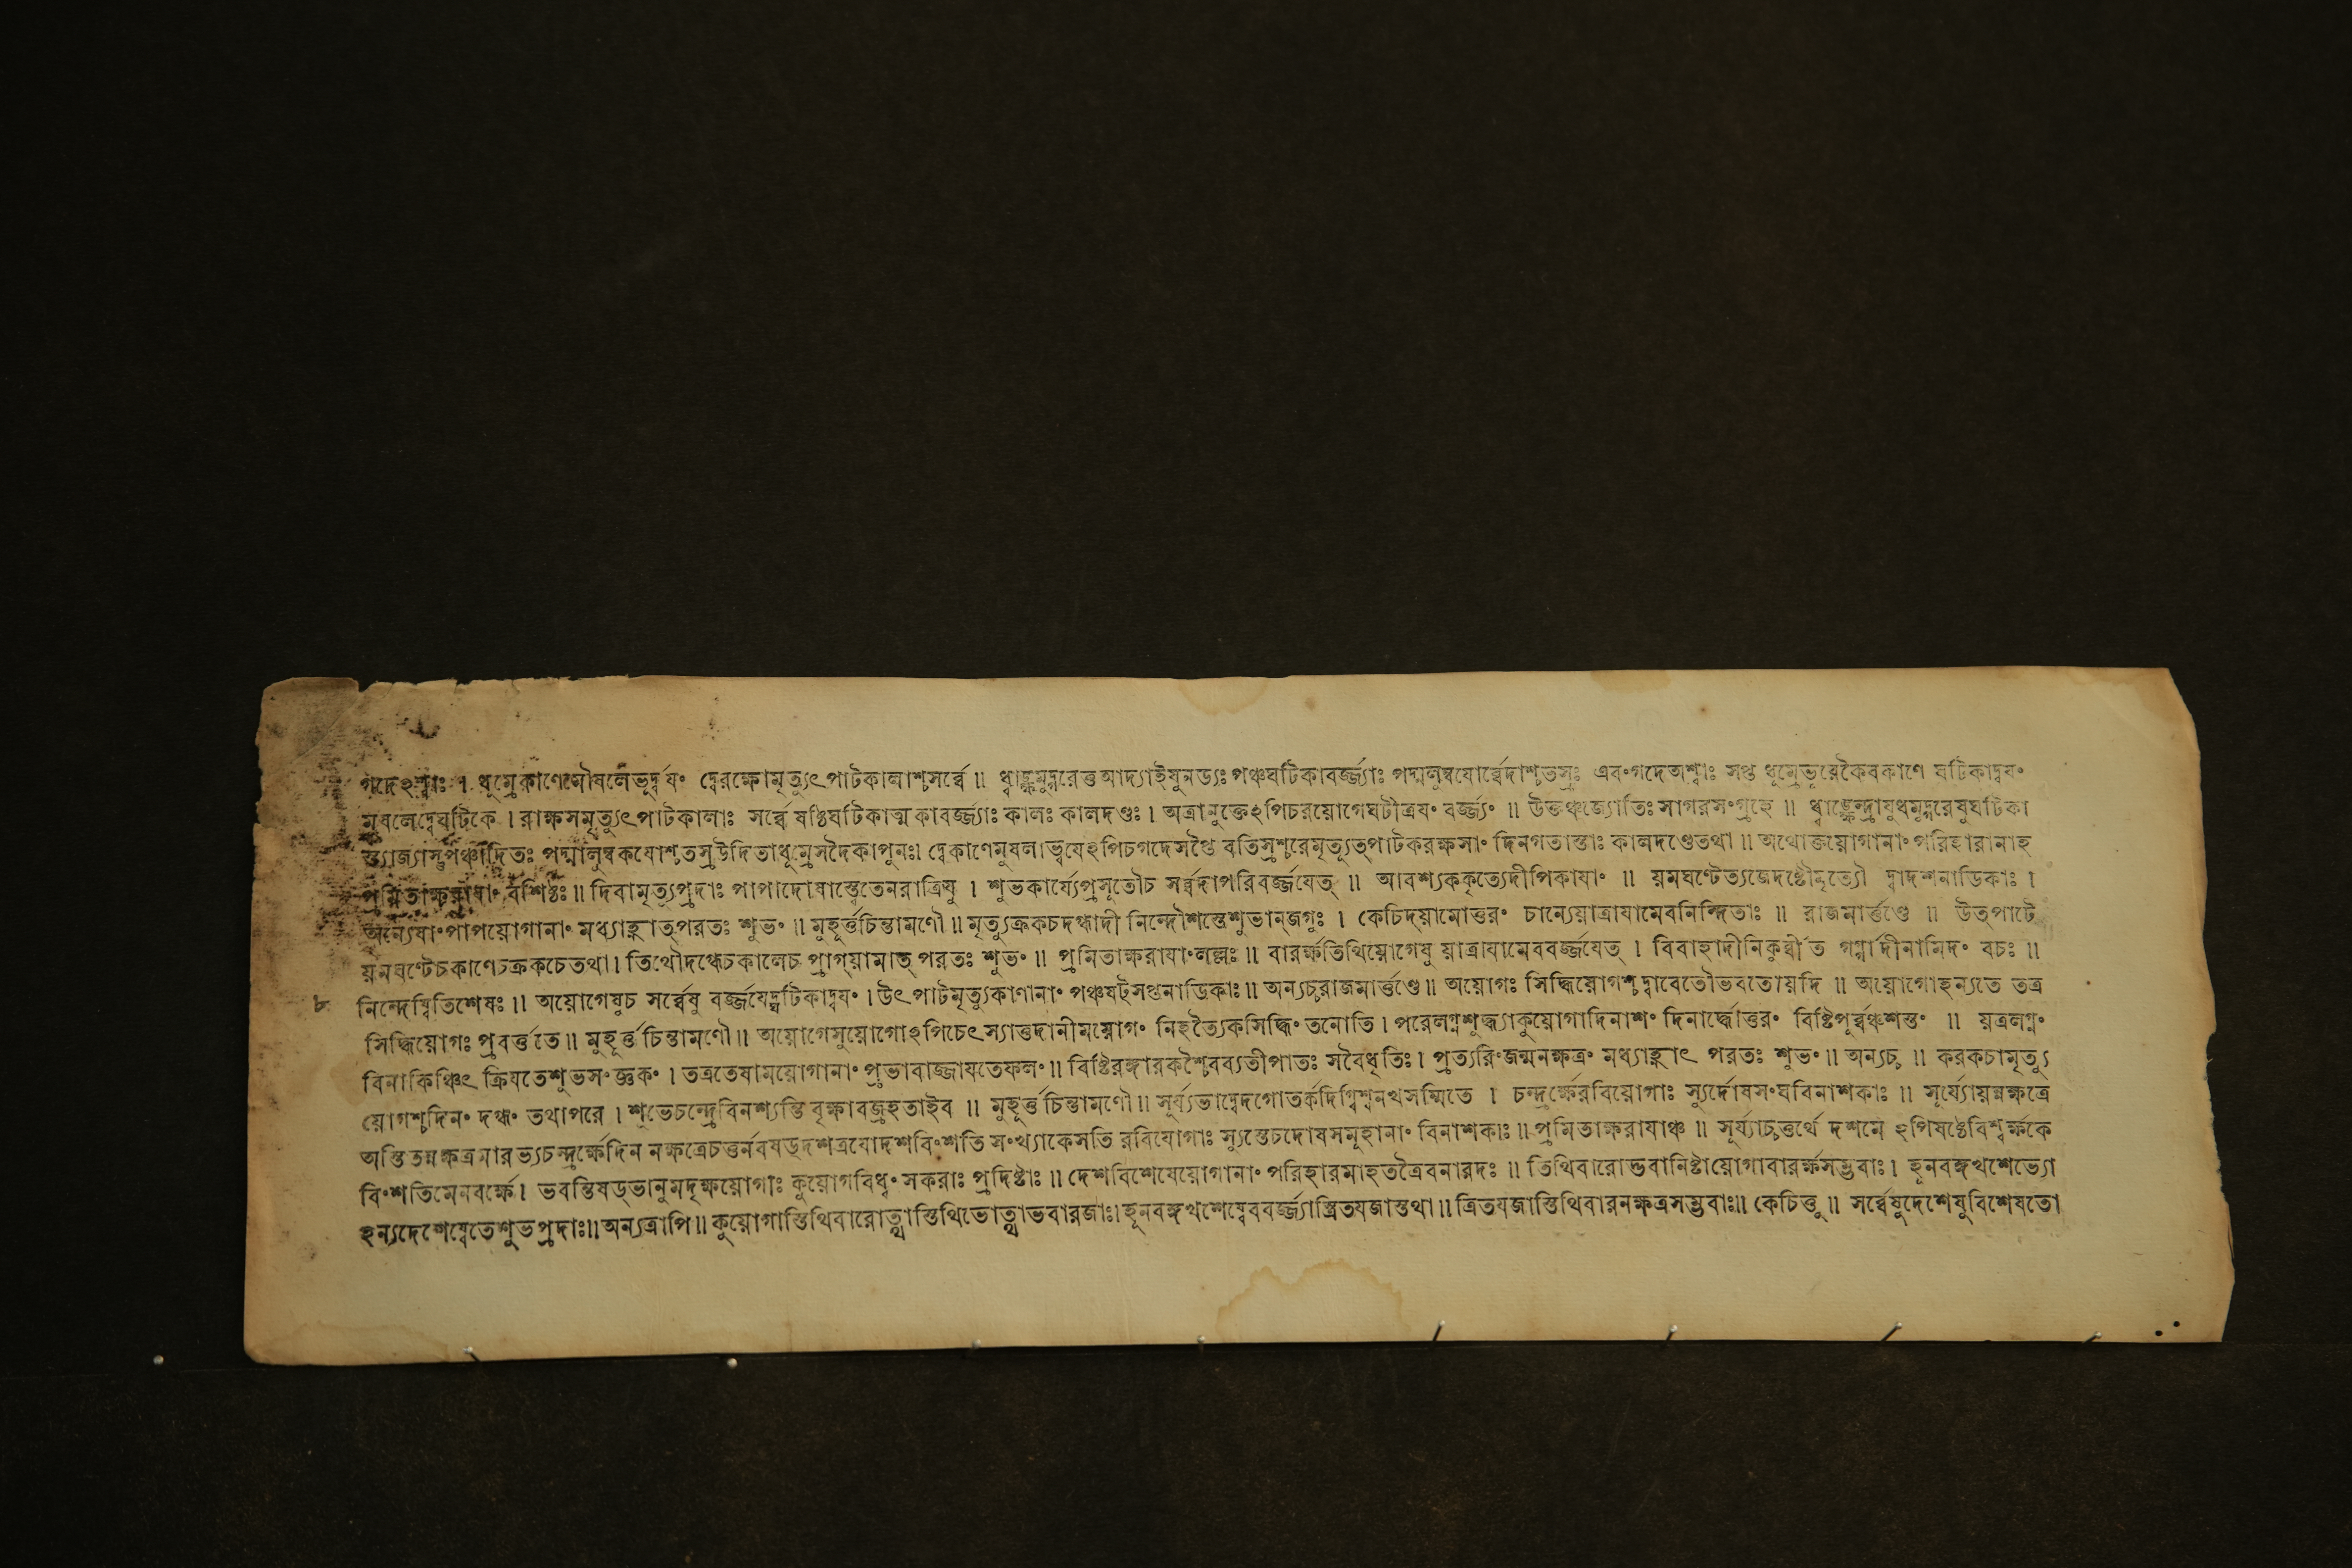 গদেঽশ্বাঃ । ধূম্রেকাণেমৌষলেভূর্দ্বযং দ্বেরক্ষোমৃত্যুৎপাটকালাশ্চসর্ব্বে ॥ ধ্বাঙ্ক্ষমুদ্গরেত্তআদ্যাইষুনড্যঃপঞ্চঘটিকাবর্জ্জ্যাঃ পদ্মলুম্বযোর্ব্বেদাশ্চতস্রঃ এবংগদেঅশ্বাঃ সপ্ত ধূম্রেভূরেকৈবকাণে ঘটিকাদ্বযং
মুষলেদ্বেঘটিকে । রাক্ষসমৃত্যুৎপাটকালাঃ সর্ব্বে ষষ্ঠিঘটিকাত্মকাবর্জ্জ্যাঃ কালঃ কালদণ্ডঃ । অত্রানুক্তেঽপিচরয়োগেঘটীত্রযং বর্জ্জ্যং ॥ উক্তঞ্চজ্যোতিঃসাগরসংগ্রহে ॥ ধ্বাঙ্ক্ষেন্দ্রাযুধমুদ্গরেষুঘটিকা
স্ত্যাজ্যাস্তুপঞ্চাদিতঃ পদ্মালুম্বকযোশ্চতস্রউদিতাধূম্রেসদৈকাপুনঃ। দ্বেকাণেমুষলাভ্বযেঽপিচগদেসপ্তৈ বতিস্রশ্চরেমৃত্যুত্পাটকরক্ষসাং দিনগতাস্তাঃ কালদণ্ডেতথা ॥ অথোক্তয়োগানাং পরিহারানাহ
প্রমিতাক্ষরাযাং বশিষ্ঠঃ ॥ দিবামৃত্যুপ্রদাঃ পাপাদোষাস্ত্বেতেনরাত্রিষু । শুভকার্য্যেপ্রসূতৌচ সর্ব্বদাপরিবর্জ্জযেত্ ॥ আবশ্যককৃত্যেদীপিকাযাং ॥ য়মঘণ্টেত্যজেদষ্টৌমৃত্যৌ দ্বাদশনাডিকাঃ ।
অন্যেষাংপাপয়োগানাং মধ্যাহ্নাত্পরতঃ শুভং ॥ মুহূর্ত্তচিন্তামণৌ ॥ মৃত্যুক্রকচদগ্ধাদী নিন্দৌশস্তেশুভান্জগুঃ । কেচিদ্য়ামোত্তরং চান্যেয়াত্রাযামেবনিন্দিতাঃ ॥ রাজমার্ত্তণ্ডে ॥ উত্পাটে
য়মঘণ্টেচকাণেচক্রকচেতথা। তিথৌদগ্ধেচকালেচ প্রাগ্য়ামাত্ পরতঃ শুভং ॥ প্রমিতাক্ষরাযাংলল্লঃ ॥ বারর্ক্ষতিথিয়োগেষু য়াত্রাযামেববর্জ্জযেত্ । বিবাহাদীনিকুর্ব্বীত গর্গাদীনামিদং বচঃ ॥
৮ নিন্দেদ্বিতিশেষঃ ॥ অয়োগেষুচ সর্ব্বেষু বর্জ্জযেদ্ঘটিকাদ্বযং । উৎপাটমৃত্যুকাণানাং পঞ্চষট্সপ্তনাডিকাঃ ॥ অন্যচ্চরাজমার্ত্তণ্ডে ॥ অয়োগঃ সিদ্ধিয়োগশ্চদ্বাবেতৌভবতোয়দি ॥ অয়োগোহন্যতে তত্র
সিদ্ধিয়োগঃ প্রবর্ত্ততে ॥ মুহূর্ত্তচিন্তামণৌ ॥ অয়োগেসুয়োগোঽপিচেৎস্যাত্তদানীময়োগং নিহত্যৈকসিদ্ধিং তনোতি । পরেলগ্নশুদ্ধ্যাকুয়োগাদিনাশং দিনার্দ্ধোত্তরং বিষ্টিপুর্ব্বঞ্চশস্তং ॥ য়ত্রলগ্নং
বিনাকিঞ্চিৎ ক্রিযতেশুভসংজ্ঞকং । তত্রতেষাময়োগানাং প্রভাবাজ্জাযতেফলং ॥ বিষ্টিরঙ্গারকশ্চৈবব্যতীপাতঃ সবৈধৃতিঃ । প্রত্যরিংজন্মনক্ষত্রং মধ্যাহ্নাৎ পরতঃ শুভং ॥ অন্যচ্চ ॥ করকচামৃত্যু
য়োগশ্চদিনং দগ্ধং তথাপরে । শুভেচন্দ্রেবিনশ্যন্তি বৃক্ষাবজ্রহতাইব ॥ মুহূর্ত্তচিন্তামণৌ ॥ সূর্য্যভাদ্বেদগোতর্কদিগ্বিশ্বনখসম্মিতে । চন্দ্রর্ক্ষেরবিয়োগাঃ স্যুর্দোষসংঘবিনাশকাঃ ॥ সূর্য্যোয়ন্নক্ষত্রে
অস্তিতন্নক্ষত্রমারভ্যচন্দ্রর্ক্ষেদিন নক্ষত্রেচত্তর্নবষড্দশত্রযোদশবিংশতি সংখ্যাকেসতি রবিযোগাঃ স্যুস্তেচদোষসমুহানাং বিনাশকাঃ ॥ প্রমিতাক্ষরাযাঞ্চ ॥ সূর্য্যাচ্চত্তর্থে দশমে ঽপিষষ্টেবিশ্বর্ক্ষকে
বিংশতিমেনবর্ক্ষে। ভবন্তিষড্ভানুমদৃক্ষয়োগাঃ কুয়োগবিধ্বং সকরাঃ প্রদিষ্টাঃ ॥ দেশবিশেষেয়োগানাং পরিহারমাহতত্রৈবনারদঃ ॥ তিথিবারোদ্ভবানিষ্টায়োগাবারর্ক্ষসম্ভবাঃ । হূনবঙ্গখশেভ্যো
ঽন্যদেশেষ্বেতেশুভপ্রদাঃ॥ অন্যত্রাপি ॥ কুয়োগাস্তিথিবারোত্থাস্তিথিভোত্থাভবারজাঃ। হূনবঙ্গখশেষ্বেববর্জ্জ্যাস্ত্রিতযজাস্তথা ॥ ত্রিতযজাস্তিথিবারনক্ষত্রসম্ভবাঃ॥ কেচিত্তু ॥ সর্ব্বেষুদেশেষুবিশেষতো